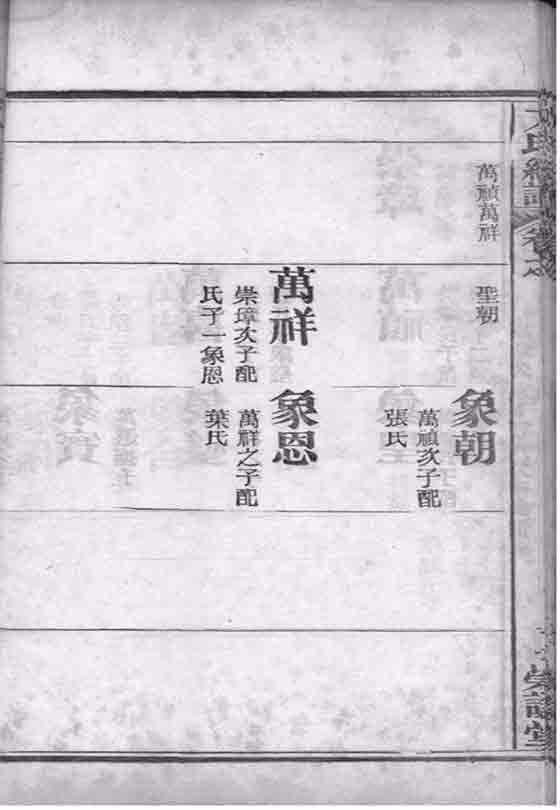 萬禎萬祥
聖朝
象朝
萬禎次子配
張氏
萬祥
崇璋次子配
氏子一象恩
象恩
萬祥之子配
葉氏